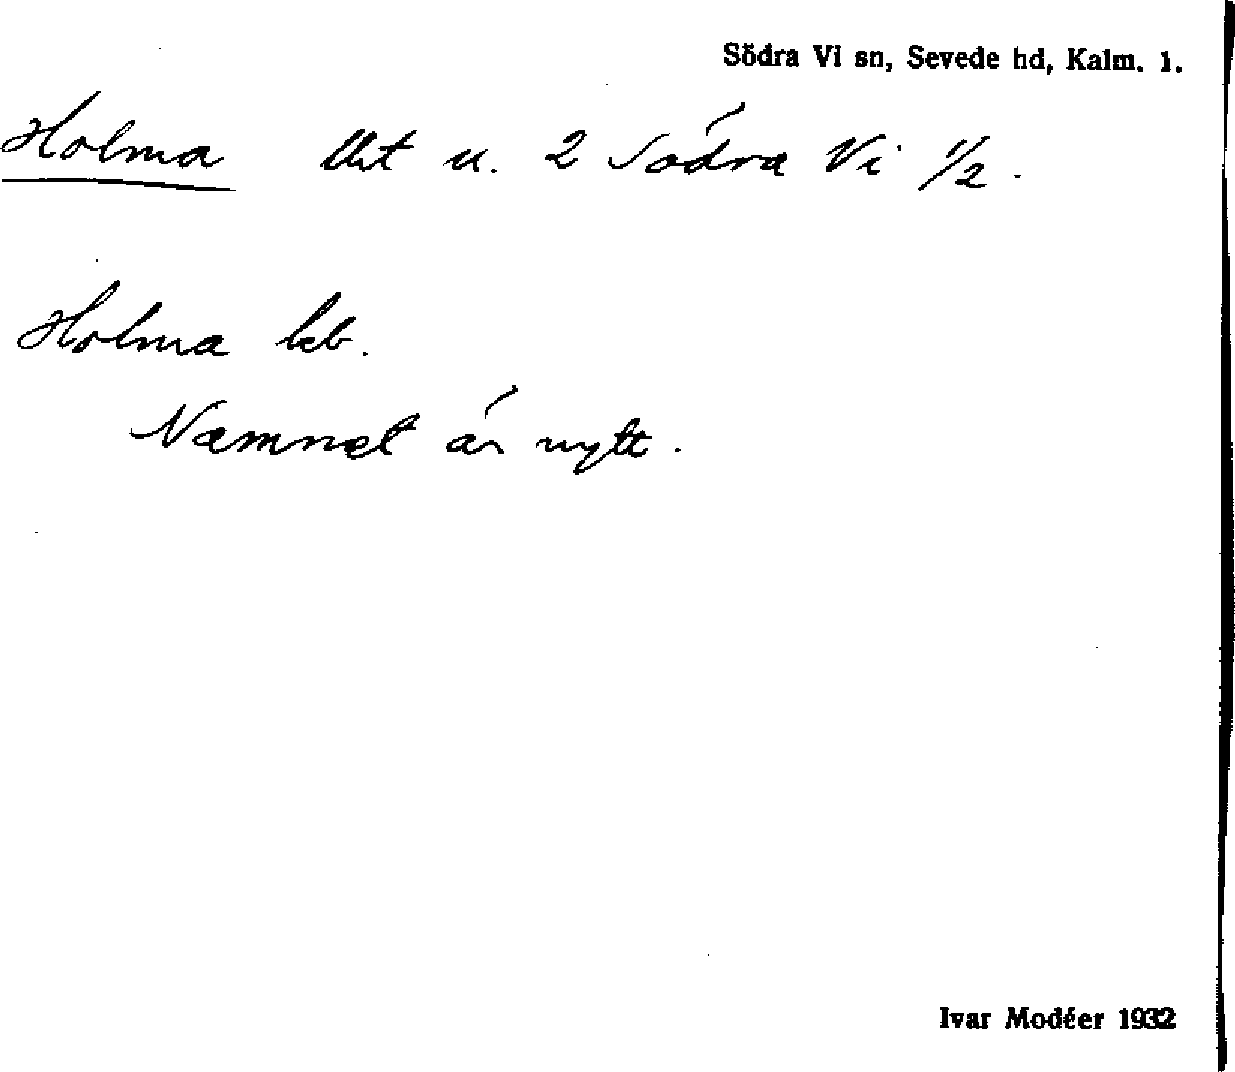 Södra Vi sn, Sevede hd, Kalm. 1.
Holma Utt u. 2 Södra Vi 1/2.
Holma
Namnet är nytt.
Ivar Modéer 1932